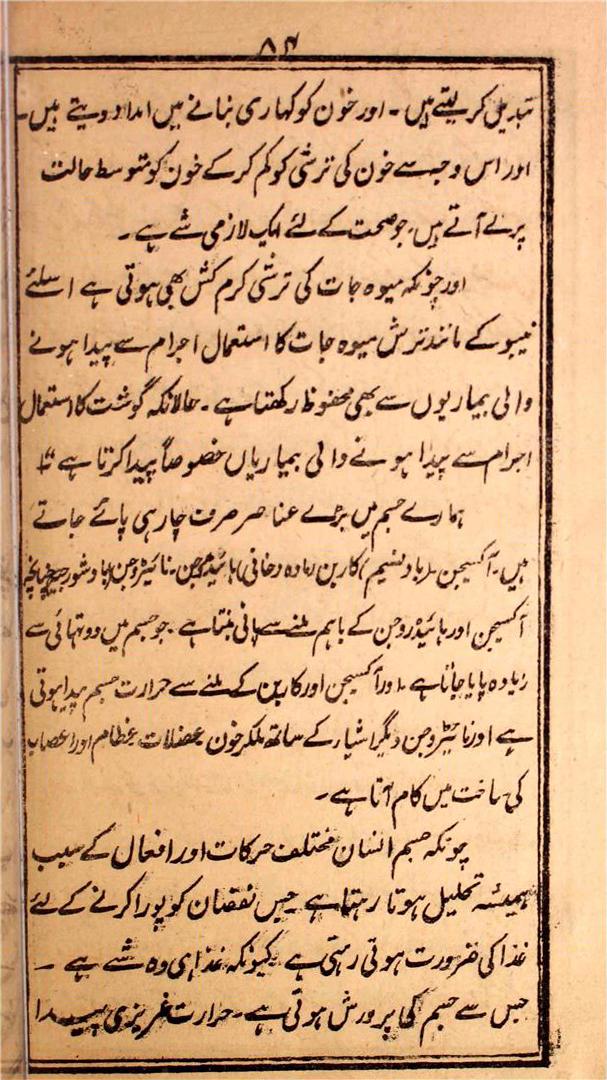 ۸۴
تبدیل کر لیتے ہیں۔ اور خون کو کھاری بنانے میں امداد دیتے ہیں۔
اور اس وجہ سے خون کی ترشی کو کم کر کے خون کو متوسط حالت
پر لے آتے ہیں۔ جو صحت کے لئے ایک لازمی شے ہے۔
اور چونکہ میوہ جات کی ترشی کرم کش بھی ہوتی ہے اسلئے
نیبو کے مانند ترش میوہ جات کا استعمال اجرام سے پیدا ہونے
والی بیماریوں سے بھی محفوظ رکھتا ہے۔ حالانکہ گوشت کا استعمال
اجرام سے پیدا ہونے والی بیماریاں خصوصاً پیدا کرتا ہے
ہمارے جسم میں بڑے عناصر صرف چار ہی پائے جاتے
ہیں۔ آکسیجن۔ (باد نسیم) کاربن (مادہ دخانی) ہائیڈروجن۔ نائیٹروجن (باد شورجیہ) چنانچہ
آکسیجن اور ہائیڈروجن کے باہم ملنے سے پانی بنتا ہے۔ جو جسم میں دو تہائی سے
زیادہ پایا جاتا ہے۔ اور آکسیجن اور کاربن کے ملنے سے حرارت جسم پیدا ہوتی
ہے اور نائیٹروجن دیگر اشیار کے ساتھ ملکر خون عضلات عظام اور اعصاب
کی ساخت میں کام آتا ہے۔
چونکہ جسم انسان مختلف حرکات اور افعال کے سبب
ہمیشہ تحلیل ہوتا رہتا ہے۔ جس نقصان کو پورا کرنے کے لئے
غذا کی ضرورت ہوتی رہتی ہے۔ کیونکہ غذا ہی وہ شے ہے۔
جس سے جسم کی پرورش ہوتی ہے۔ حرارت غریزی پیدا